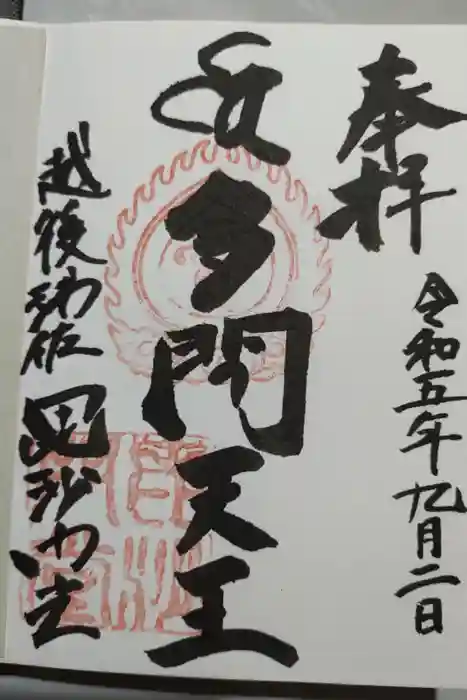 奉拝
令和五年九月二日
多門天王
越後浦佐
毘沙門堂